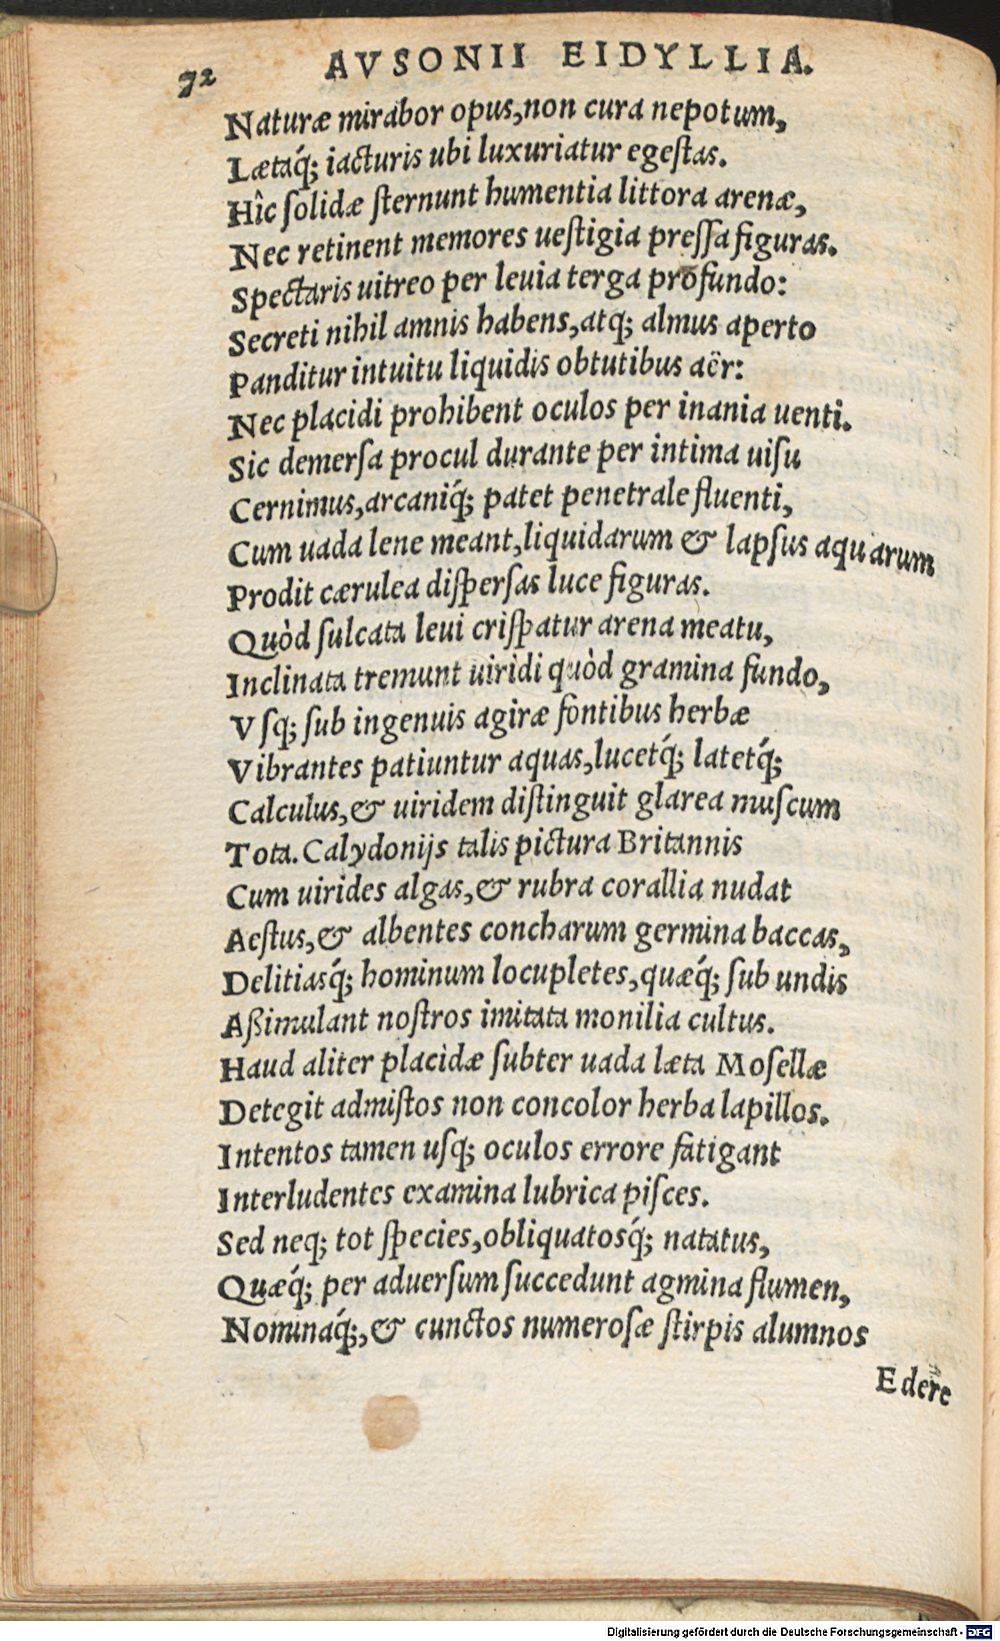 72 AVSONII EIDYLLIA.
Naturæ mirabor opus, non cura nepotum,
Lætaq́; iacturis ubi luxuriatur egestas.
Hîc solidæ sternunt humentia littora arenæ,
Nec retinent memores uestigia pressa figuras.
Spectaris uitreo per leuia terga profundo:
Secreti nihil amnis habens, atq; almus aperto
Panditur intuitu liquidis obtutibus aër:
Nec placidi prohibent oculos per inania uenti.
Sic demersa procul durante per intima uisu
Cernimus, arcaniq́; patet penetrale fluenti,
Cum uada lene meant, liquidarum & lapsus aquarum
Prodit cærulea dispersas luce figuras.
Quòd sulcata leui crispatur arena meatu,
Inclinata tremunt uiridi quòd gramina fundo,
Vsq; sub ingenuis agiræ fontibus herbæ
Vibrantes patiuntur aquas, lucetq́; latetq́;
Calculus, & uiridem distinguit glarea muscum
Tota. Calydonijs talis pictura Britannis
Cum uirides algas, & rubra corallia nudat
Aestus, & albentes concharum germina baccas,
Delitiasq́; hominum locupletes, quæq́; sub undis
Aßimulant nostros imitata monilia cultus.
Haud aliter placidæ subter uada læta Mosellæ
Detegit admistos non concolor herba lapillos.
Intentos tamen usq; oculos errore fatigant
Interludentes examina lubrica pisces.
Sed neq; tot species, obliquatosq́; natatus,
Quæq́; per aduersum succedunt agmina flumen,
Nominaq́;, & cunctos numerosæ stirpis alumnos
Edere
Digitalisierung gefördert durch die Deutsche Forschungsgemeinschaft - DFG